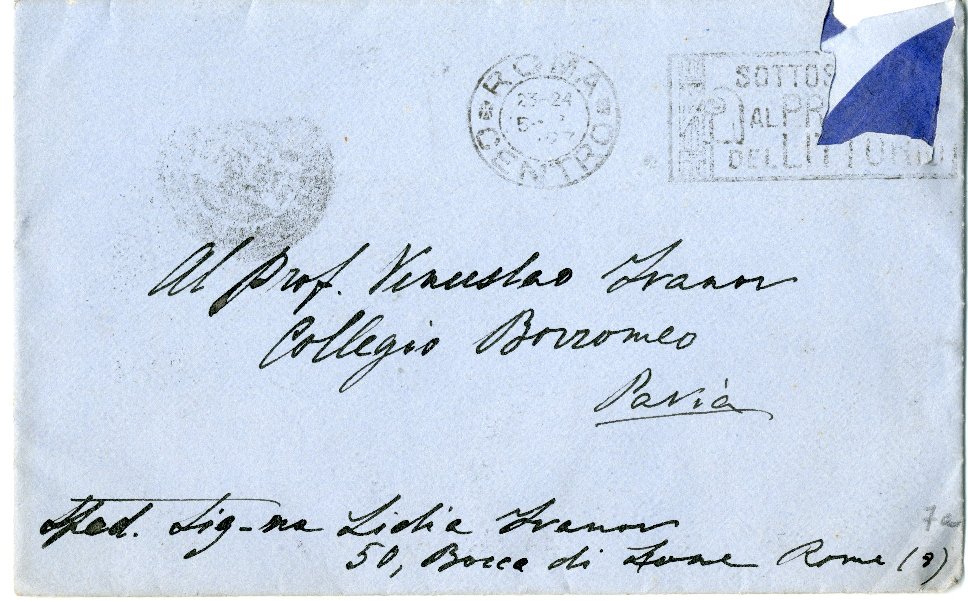 ROMA CENTRO
23-24
SOTTOS
AL PR
DEL LITTORIO
Al Prof. Venceslao Ivanov
Collegio Borromeo
Pavia
Sped. Sig-na Lidia Ivanov
50, Bocca di Leone Roma (8)
7a